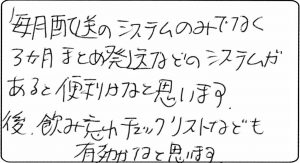 毎月配送のシステムのみでなく
3ヶ月まとめ発送などのシステムが
あると便利かなと思います.
後、飲み忘れチェックリストなども
有効かなと思います